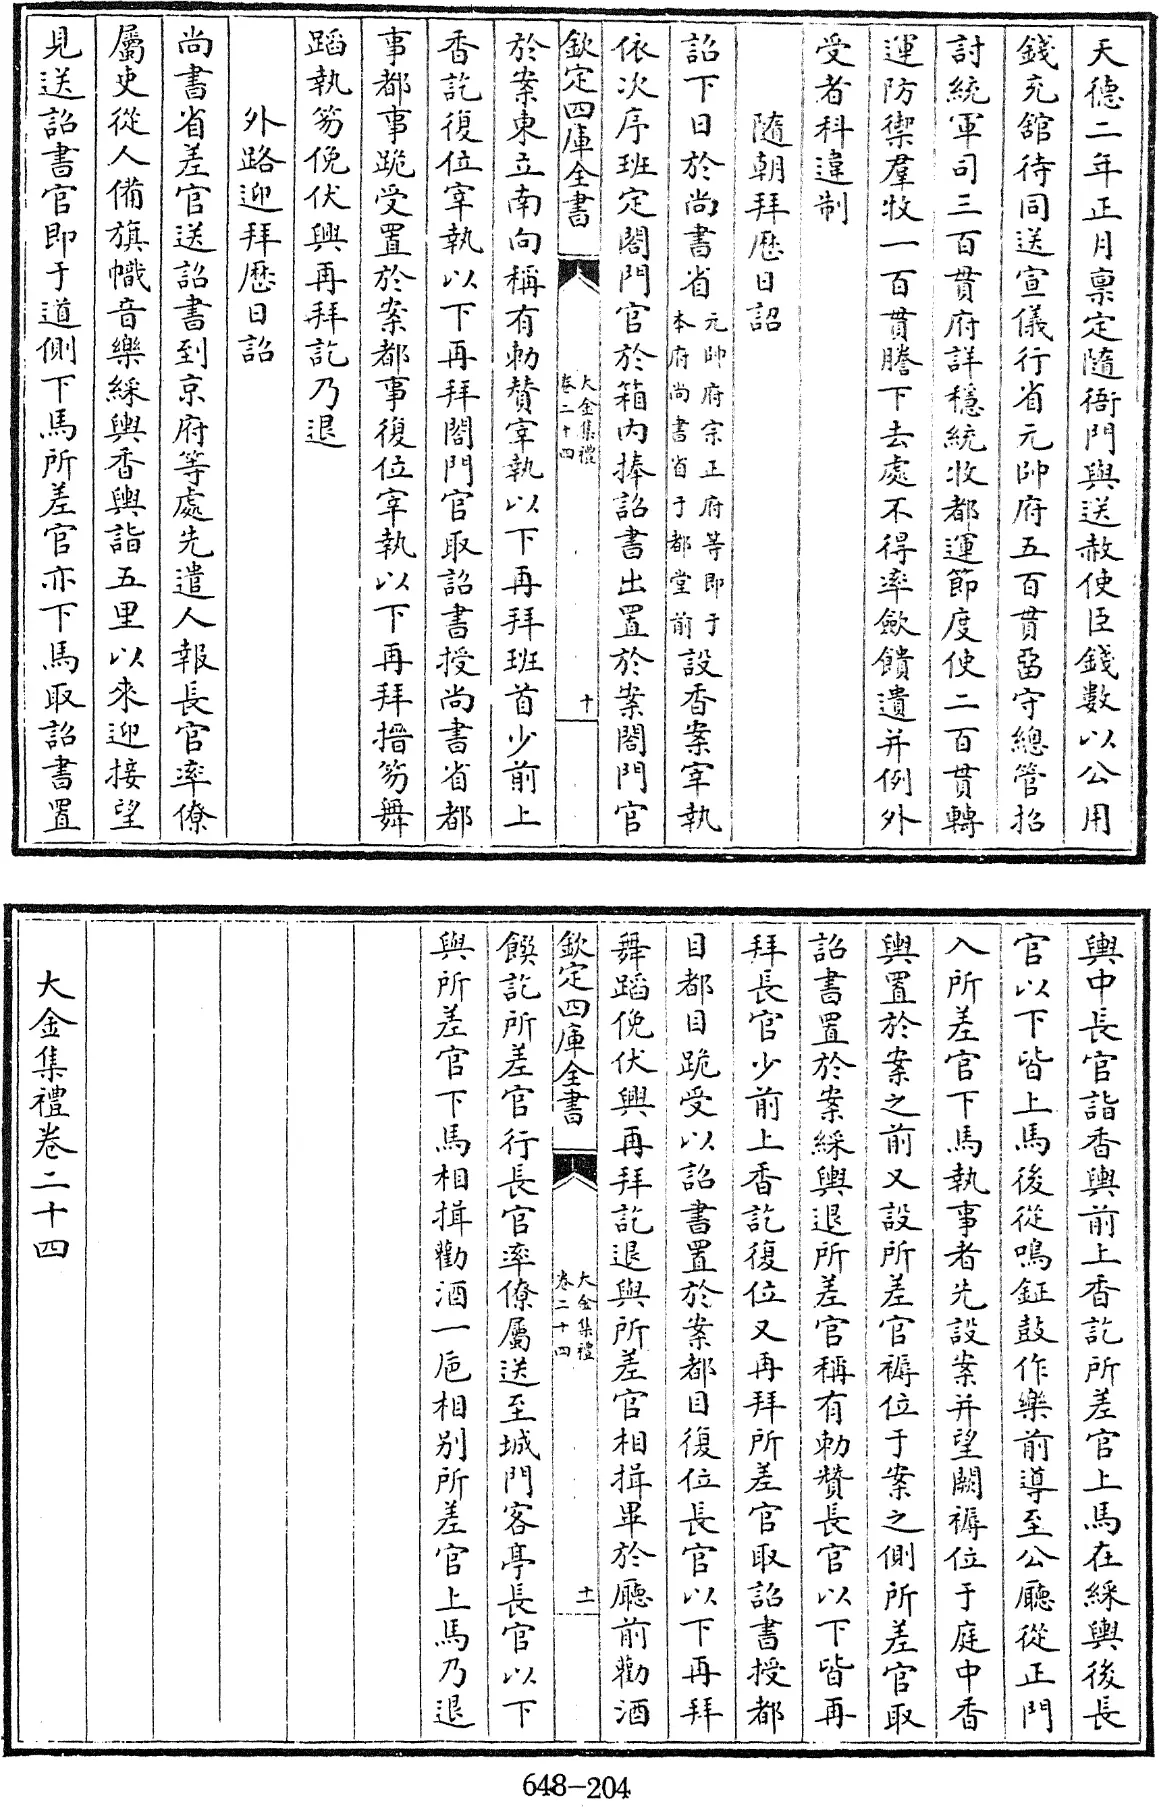 天德二年正月稟定隨衙門與送赦使臣錢數以公用
錢充舘待同送宣儀行省元帥府五百貫畱守總管招
討統軍司三百貫府詳穩統收都運節度使二百貫轉
運防禦羣牧一百貫謄下去處不得率歛饋遺并例外
受者科違制
隨朝拜厯日詔
詔下日於尚書省元帥府宗正府等即于本府尚書省于都堂前設香案宰執
依次序班定閤門官於箱内捧詔書出置於案閤門官
欽定四庫全書
大金集禮
卷二十四
十
於案東立南向稱有勅贊宰執以下再拜班首少前上
香訖復位宰執以下再拜閤門官取詔書授尚書省都
事都事跪受置於案都事復位宰執以下再拜搢笏舞
蹈執笏俛伏興再拜訖乃退
外路迎拜厯日詔
尚書省差官送詔書到京府等處先遣人報長官率僚
屬吏從人備旗幟音樂綵輿香輿詣五里以來迎接望
見送詔書官即于道側下馬所差官亦下馬取詔書置
輿中長官詣香輿前上香訖所差官上馬在綵輿後長
官以下皆上馬後從鳴鉦鼓作樂前導至公廳從正門
入所差官下馬執事者先設案并望闕褥位于庭中香
輿置於案之前又設所差官褥位于案之側所差官取
詔書置於案綵輿退所差官稱有勅贊長官以下皆再
拜長官少前上香訖復位又再拜所差官取詔書授都
目都目跪受以詔書置於案都目復位長官以下再拜
舞蹈俛伏興再拜訖退與所差官相揖畢於廳前勸酒
欽定四庫全書
大金集禮
卷二十四
十一
饌訖所差官行長官率僚屬送至城門客亭長官以下
與所差官下馬相揖勸酒一巵相别所差官上馬乃退
大金集禮卷二十四
648-204